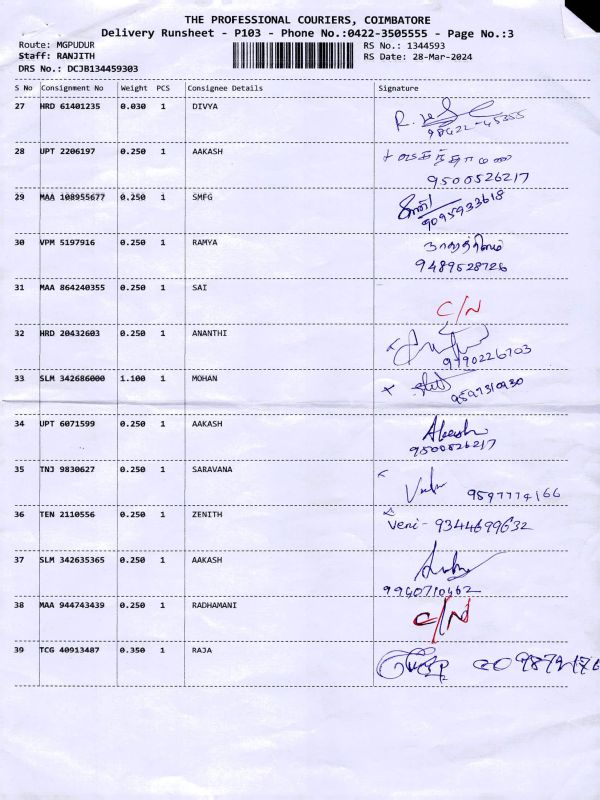 THE PROFESSIONAL COURIERS, COIMBATORE
Delivery Runsheet - P103 - Phone No.:0422-3505555 - Page No.:3
Route: MGPUDUR RS No.: 1344593
Staff: RANJITH RS Date: 28-Mar-2024
DRS No.: DCJB134459303
S No Consignment No Weight PCS Consignee Details Signature
27 HRD 61401235 0.030 1 DIVYA
98422-45355
28 UPT 2206197 0.250 1 AAKASH
9500526217
29 MAA 108955677 0.250 1 SMFG
9095933618
30 VPM 5197916 0.250 1 RAMYA
9489528726
31 MAA 864240355 0.250 1 SAI
C/N
32 HRD 20432603 0.250 1 ANANTHI
9790226703
33 SLM 342686000 1.100 1 MOHAN
34 UPT 6071599 0.250 1 AAKASH
Akash
9500526217
35 TNJ 9830627 0.250 1 SARAVANA
9597774166
36 TEN 2110556 0.250 1 ZENITH
Veni- 9344699632
37 SLM 342635365 0.250 1 AAKASH
9940710462
38 MAA 944743439 0.250 1 RADHAMANI
C/N
39 TCG 40913487 0.350 1 RAJA